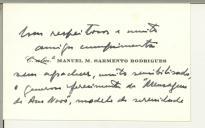 com respeitosos e muito
amigos cumprimentos
MANUEL M. SARMENTO RODRIGUES
vem agradecer, muito sensibilizado,
o generoso oferecimento da "Mensagem
de Ano Novo, modelo de serenidade